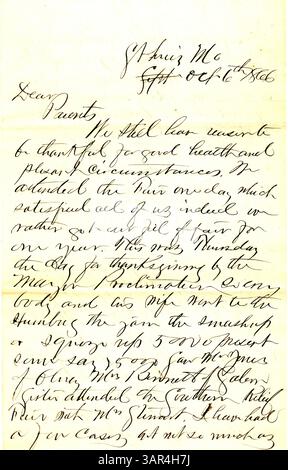 St Louis Mo
Sept Oct 6th 1866
Dear
Parents
We still have reason to
be thankful for good health and
pleasant circumstances. We
attended the Fair one day which
satisfied all of us indeed we
rather got our fil of fair for
one year. This was Thursday
the day for thanksgiving by the
Mayor Proclamation so every
body and his wife went to the
Humbug the jam the smashup
or squeeze up 50000 present
some say 75000 saw Mr
of Olney Mrs Bennett of Galena
attended the Southern Relief
Fair with Mrs Stewart I have had
a few cases but not so much as
alamy
Image ID: 3AR4H7J
www.alamy.com